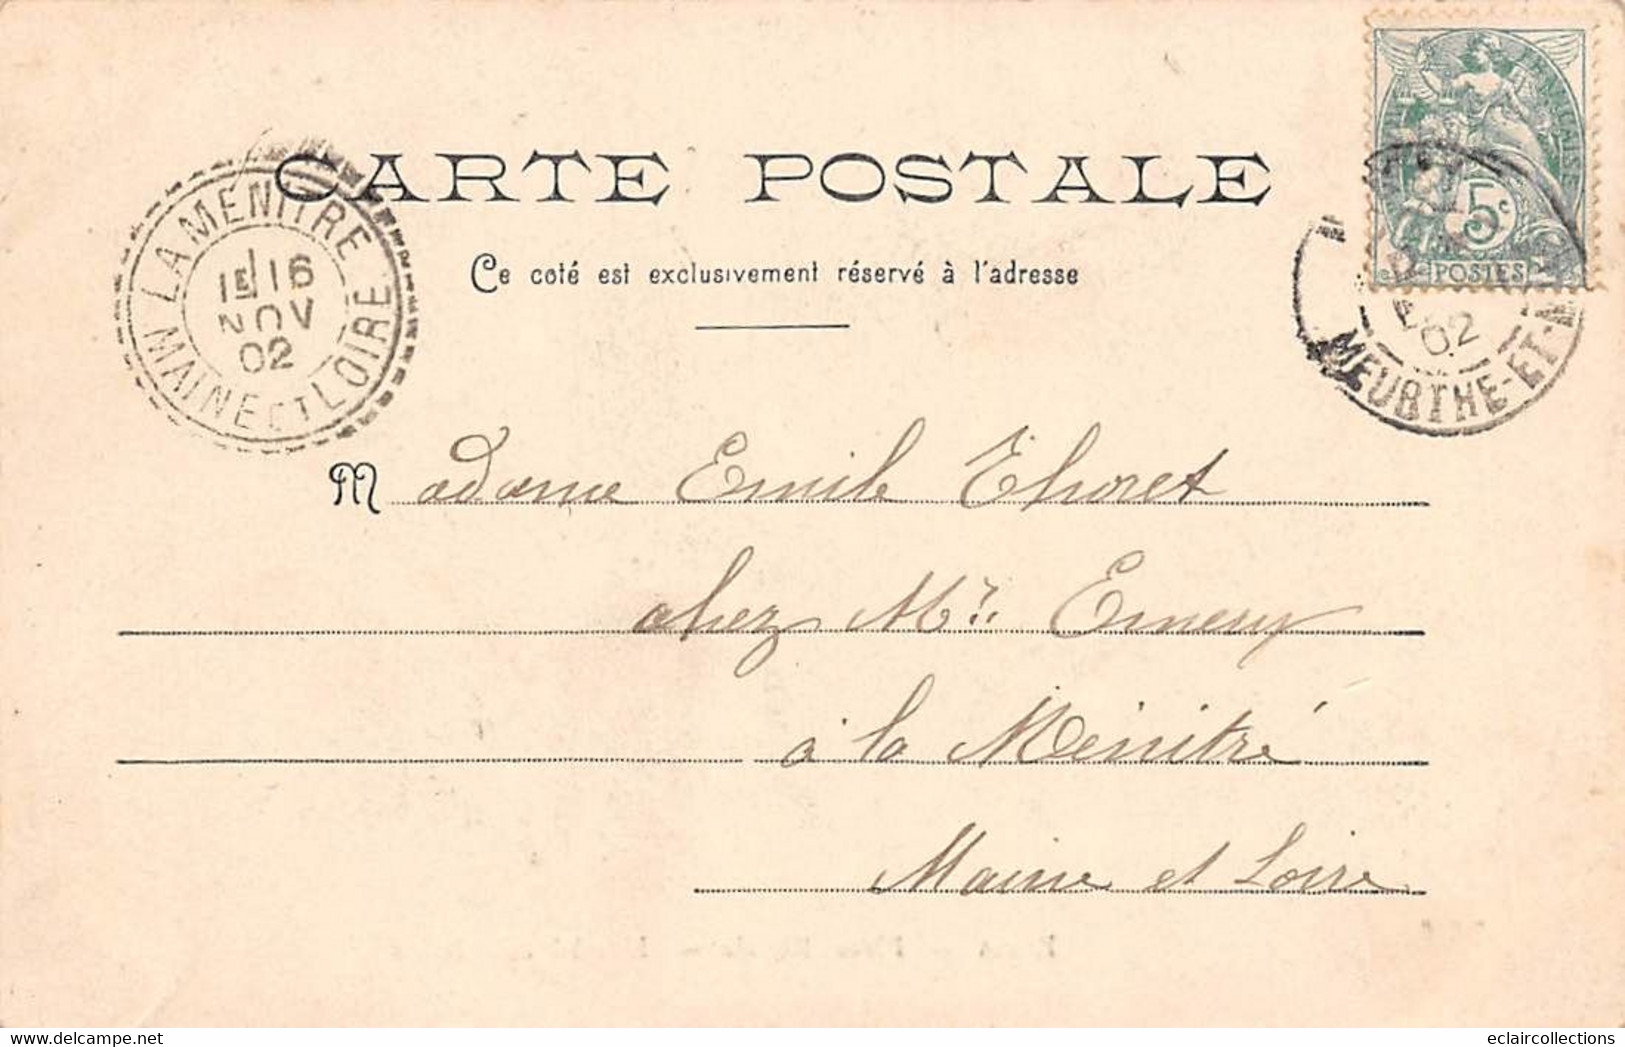 CARTE POSTALE
Ce coté est exclusivement réservé à l'adresse
LA MENITRE
1E 16
NOV
02
MAINE ET LOIRE
5c
POSTES
02
MEURTHE-ET-M
Madame Emile Thoret
chez Mr. Emery
à la Ménitré
Maine et Loire
eclaircollections